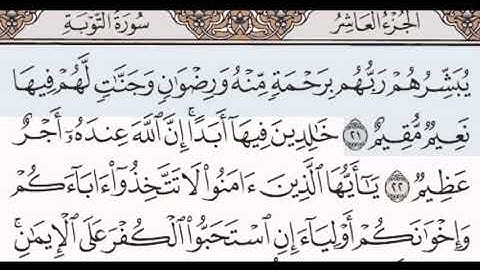 الجزء العاشر سورة التوبة
يُبَشِّرُهُمْ رَبُّهُم بِرَحْمَةٍ مِّنْهُ وَرِضْوَٰنٍ وَجَنَّـٰتٍ لَّهُمْ فِيهَا
نَعِيمٌ مُّقِيمٌ ٢١ خَـٰلِدِينَ فِيهَآ أَبَدًا ۚ إِنَّ ٱللَّهَ عِندَهُۥٓ أَجْرٌ
عَظِيمٌ ٢٢ يَـٰٓأَيُّهَا ٱلَّذِينَ ءَامَنُوا۟ لَا تَتَّخِذُوٓا۟ ءَابَآءَكُمْ
وَإِخْوَٰنَكُمْ أَوْلِيَآءَ إِنِ ٱسْتَحَبُّوا۟ ٱلْكُفْرَ عَلَى ٱلْإِيمَـٰنِ ۚ